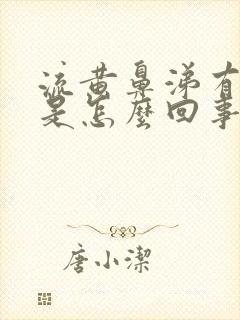 流黄鼻涕有
是怎麼回事
唐小潔